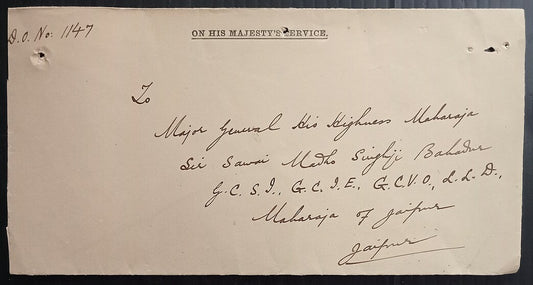 D.O. No: 1147
ON HIS MAJESTY'S SERVICE.
To
Major General His Highness Maharaja
Sir Sawai Madho Singhji Bahadur
G.C.S.I., G.C.I.E., G.C.V.O., L.L.D.,
Maharaja of Jaipur
Jaipur